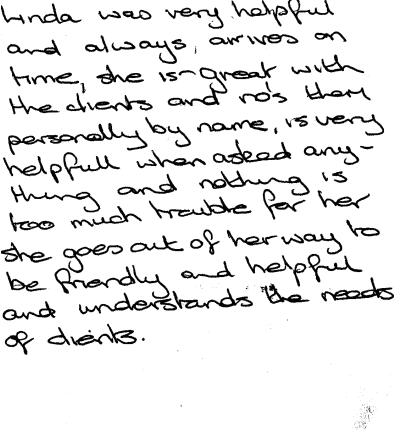 Linda was very helpful
and always, arrives on
time, she is great with
the clients and no's them
personally by name, is very
helpfull when asked any-
thing and nothing is
too much trouble for her
she goes out of her way to
be friendly and helpful
and understands the needs
of clients.